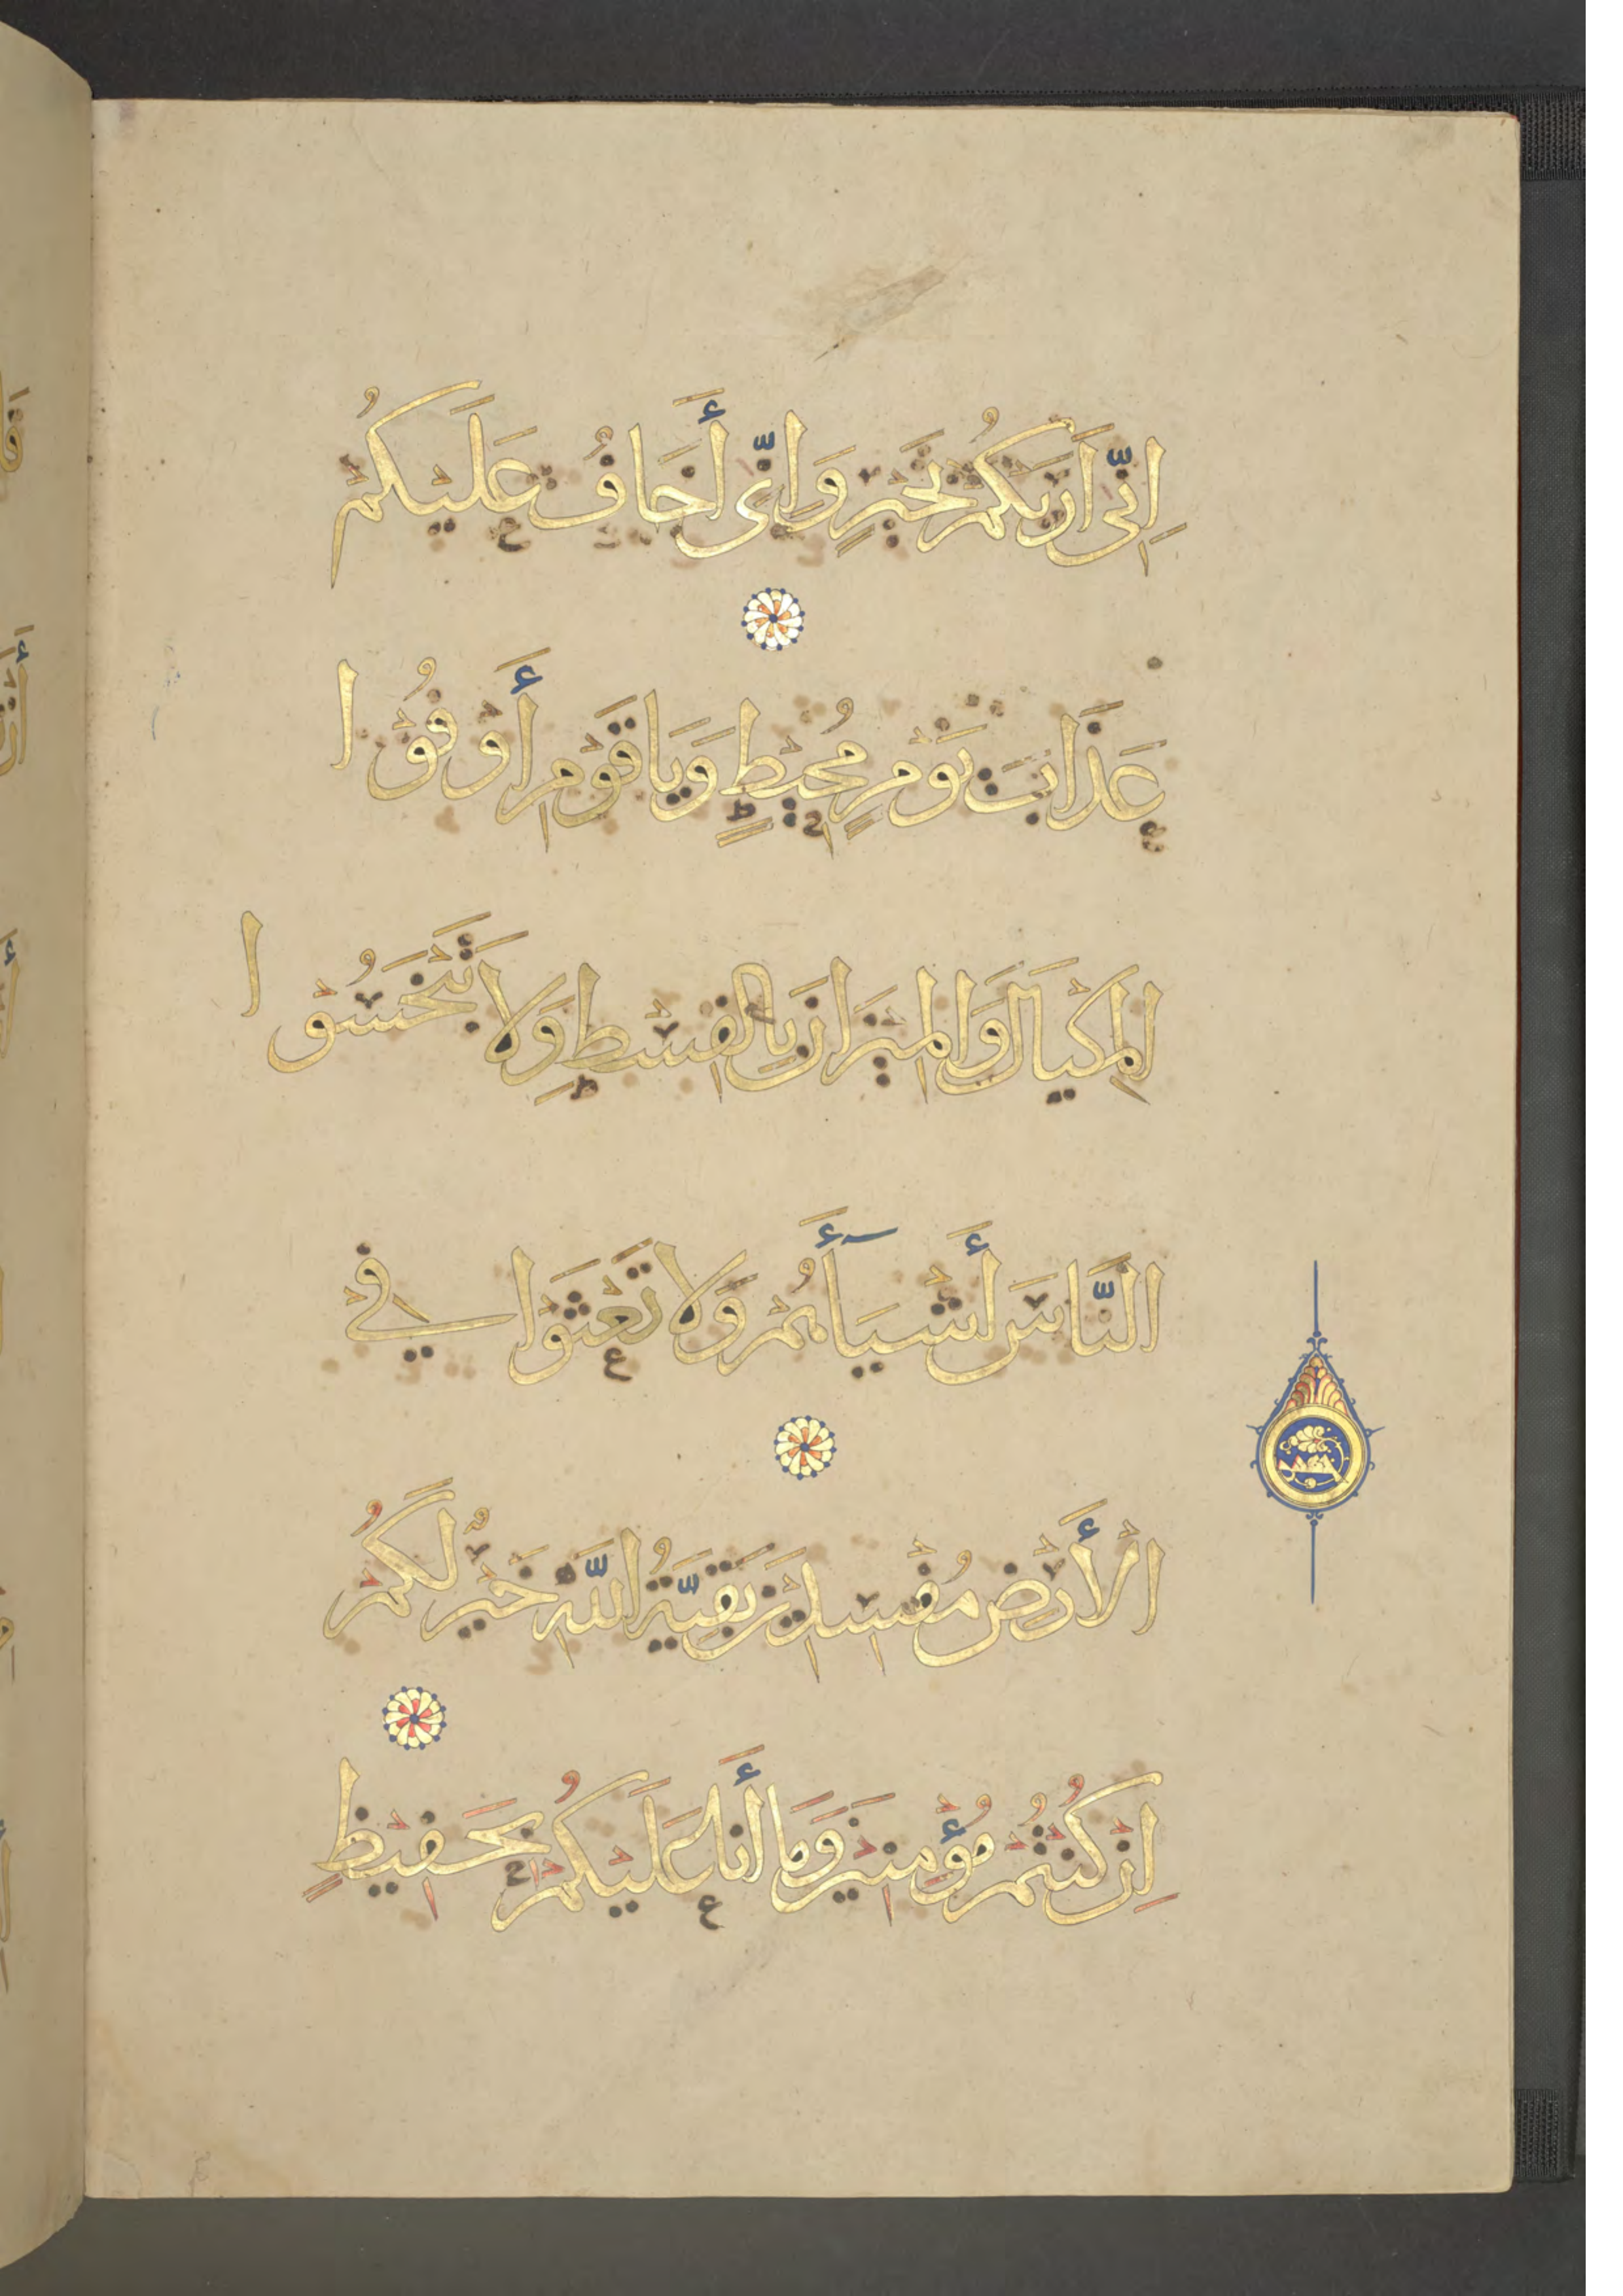 اِنِّى اَرَىكُمْ بِخَيْرٍ وَاِنِّى أَخَافُ عَلَيْكُمْ
عَذَابَ يَوْمٍ مُحِيْطٍ وَيَا قَوْمِ أَوْفُوْا
المِكْيَالَ وَالمِيْزَانَ بِالقِسْطِ وَلَا تَبْخَسُوْا
النَّاسَ أَشْيَآأَهُمْ وَلَا تَعْثَوْا فِيْ
الْأَرْضِ مُفْسِدِيْنَ بَقِيَّةُ اللَّهِ خَيْرٌ لَكُمْ
اِنْ كُنْتُمْ مُؤْمِنِيْنَ وَمَا أَنَا عَلَيْكُمْ بِحَفِيْظٍ